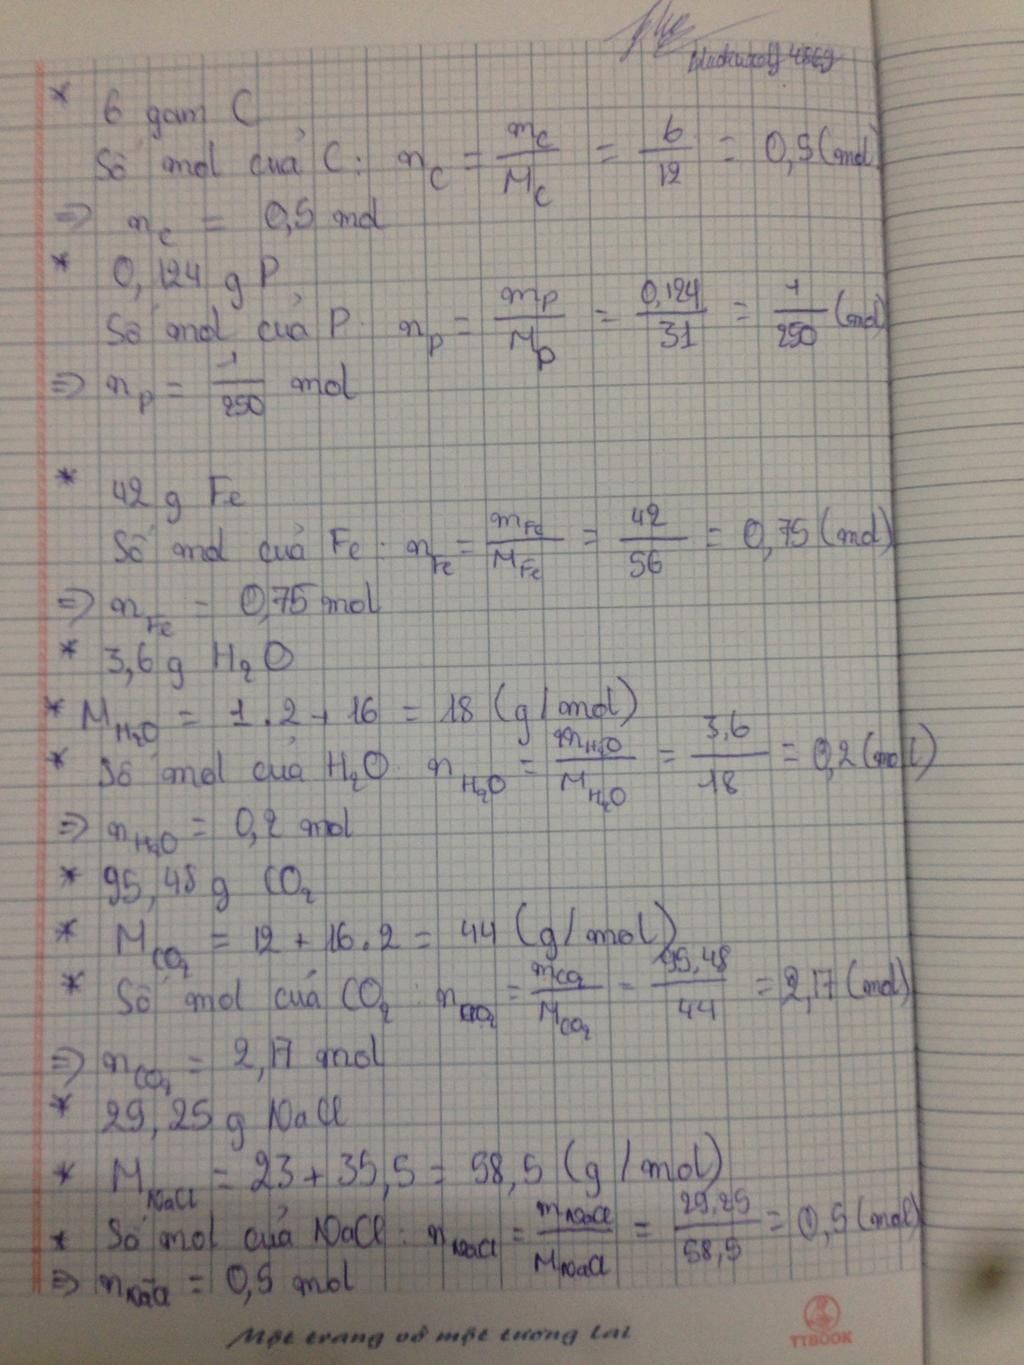 * 6 gam C
Số mol của C: nC = mC/MC = 6/12 = 0,5 (mol)
=> nC = 0,5 mol
* 0,124 g P
Số mol của P: nP = mP/MP = 0,124/31 = 1/250 (mol)
=> nP = 1/250 mol
* 42 g Fe
Số mol của Fe: nFe = mFe/MFe = 42/56 = 0,75 (mol)
=> nFe = 0,75 mol
* 3,6 g H2O
* MH2O = 1.2 + 16 = 18 (g/mol)
* Số mol của H2O: nH2O = mH2O/MH2O = 3,6/18 = 0,2 (mol)
=> nH2O = 0,2 mol
* 95,48 g CO2
* MCO2 = 12 + 16.2 = 44 (g/mol)
* Số mol của CO2: nCO2 = mCO2/MCO2 = 95,48/44 = 2,17 (mol)
=> nCO2 = 2,17 mol
* 29,25 g NaCl
* MNaCl = 23 + 35,5 = 58,5 (g/mol)
* Số mol của NaCl: nNaCl = mNaCl/MNaCl = 29,25/58,5 = 0,5 (mol)
=> nNaCl = 0,5 mol
Một trang vở một tương lai
TTBOOK